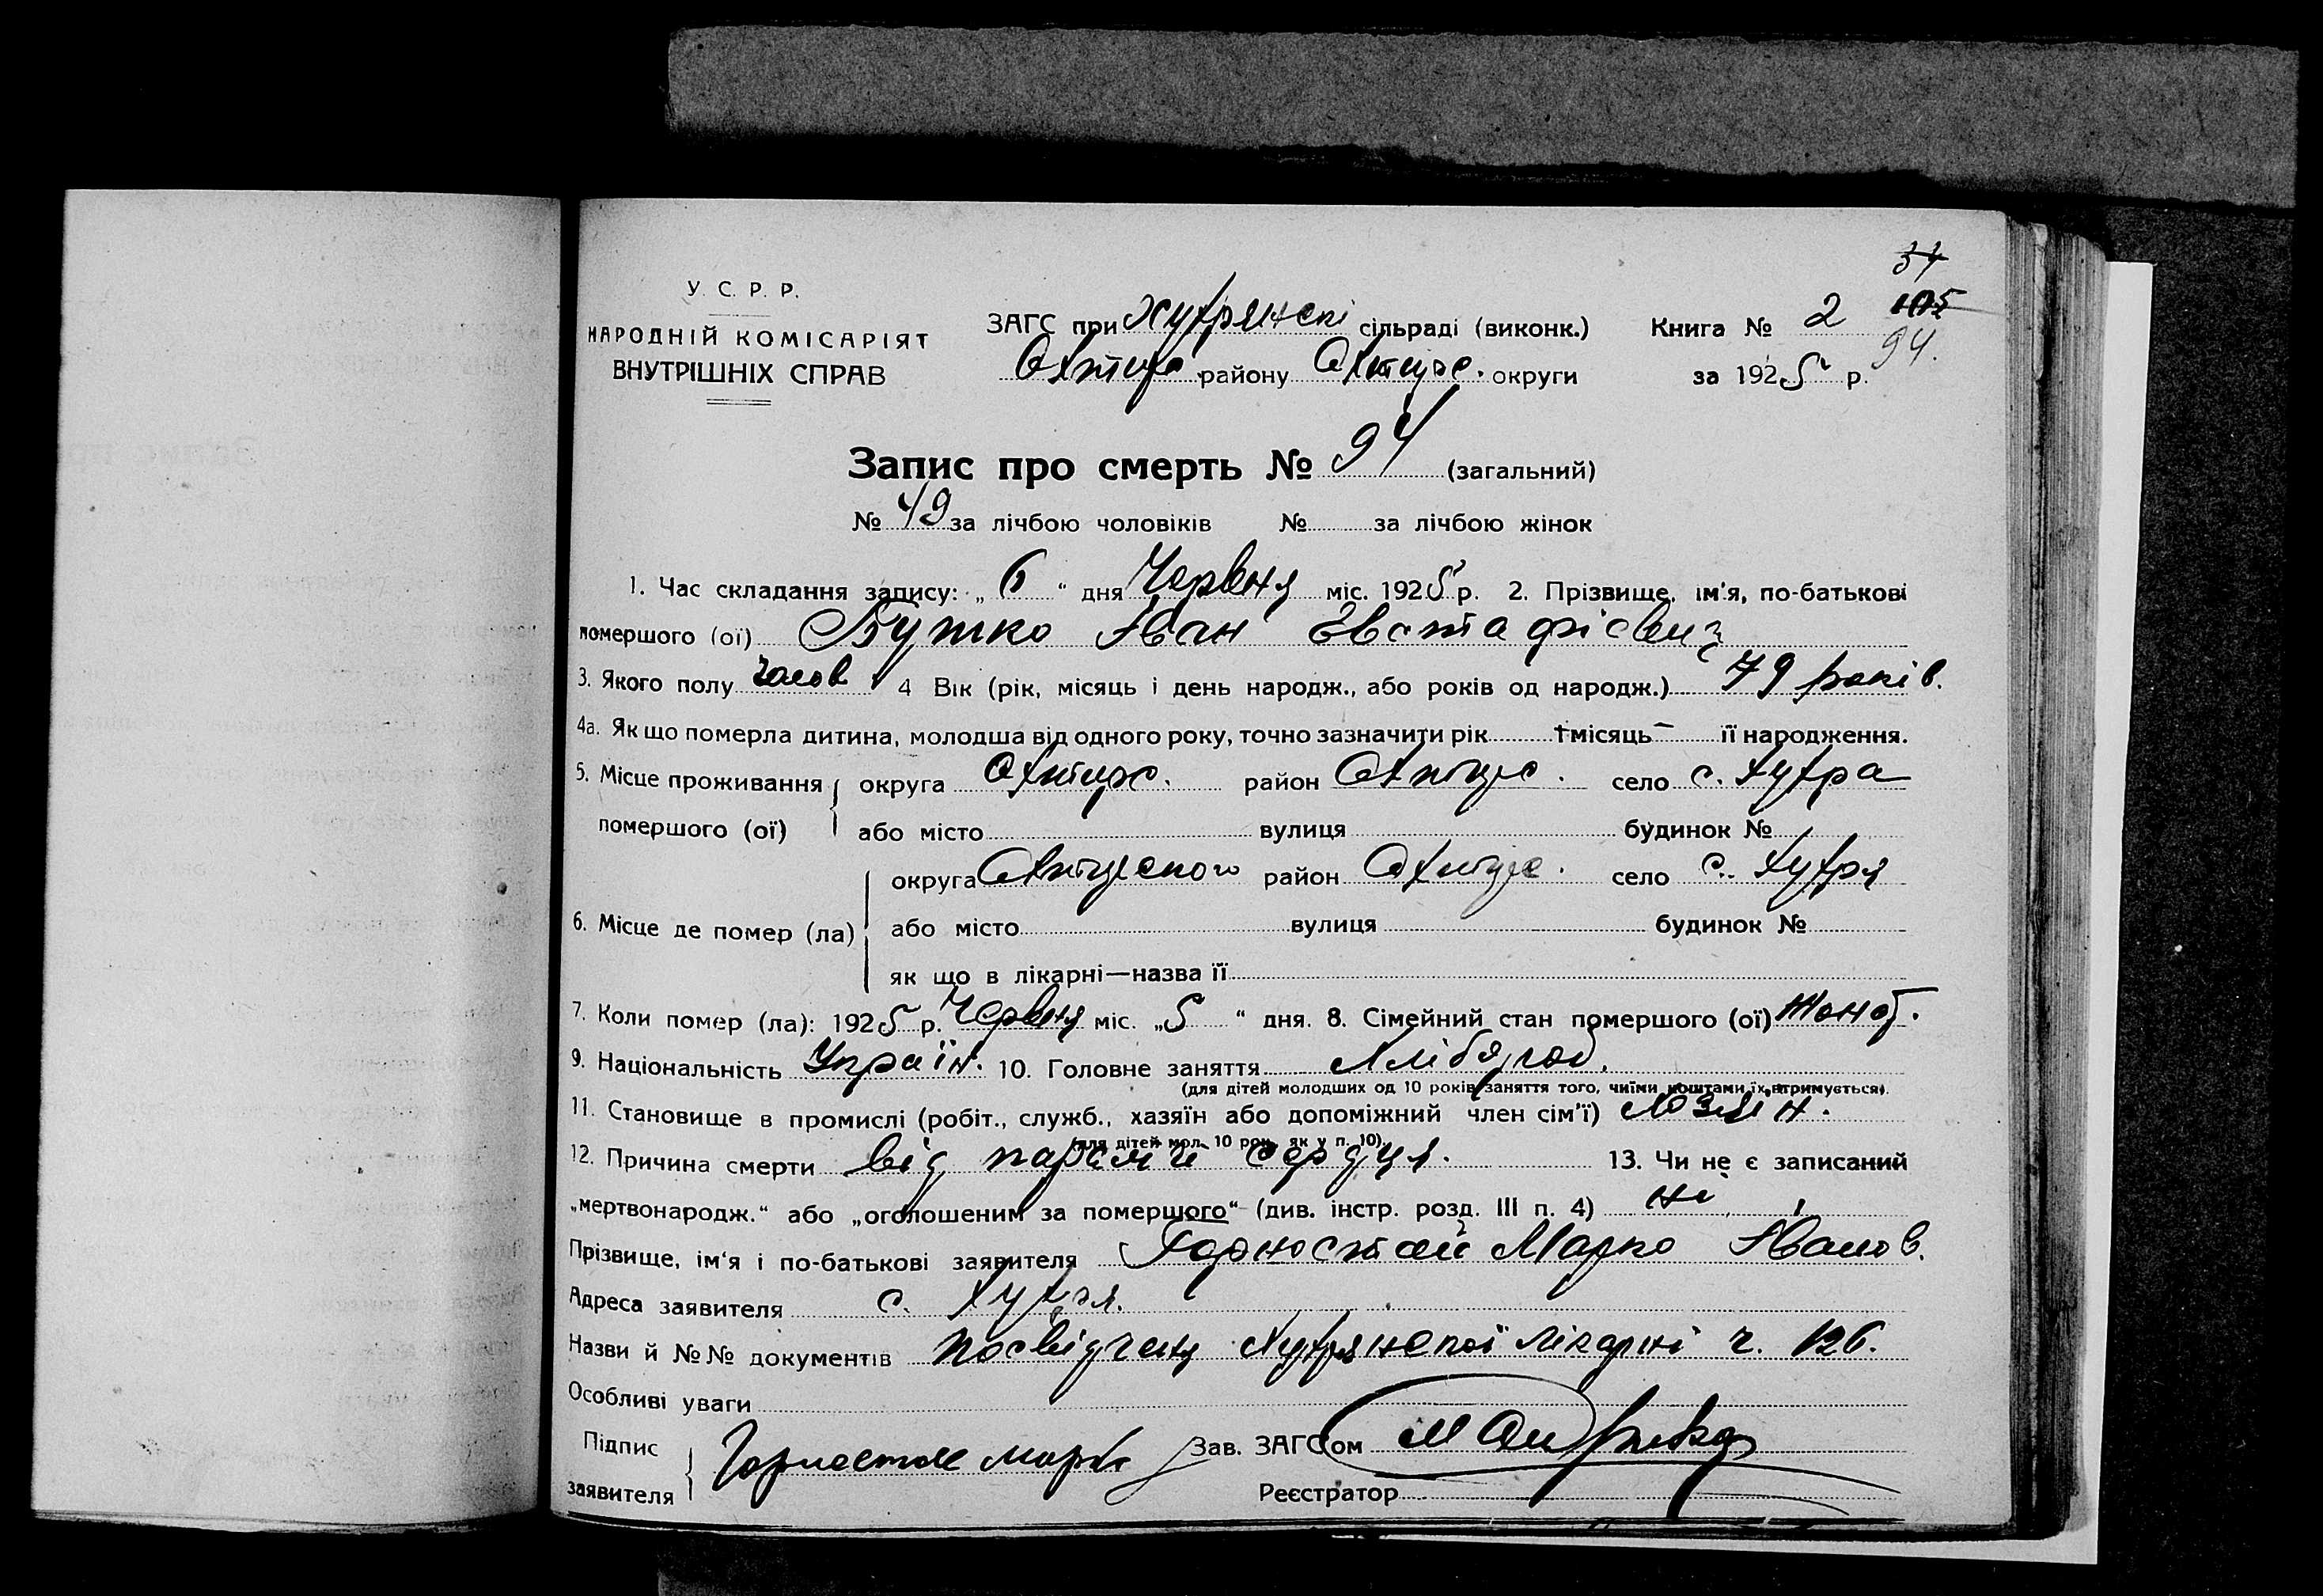 34
У. С. Р. Р.
НАРОДНІЙ КОМІСАРІЯТ
ВНУТРІШНІХ СПРАВ
ЗАГС при Хухрянскі сільраді (виконк.)
Охтир. району Охтирс. округи
Книга № 2 105
за 1925 р. 94.
Запис про смерть № 94 (загальний)
№ 49 за лічбою чоловіків № за лічбою жінок
1. Час складання запису: „ 6 “ дня Червня міс. 1925 р. 2. Прізвище, ім'я, по-батькові
помершого (ої) Бутко Іван Евстафієвич
3. Якого полу чолов 4 Вік (рік, місяць і день народж., або років од народж.) 79 років.
4а. Як що померла дитина, молодша від одного року, точно зазначити рік місяць — її народження.
5. Місце проживання округа Охтирс. район Охтирс. село с. Хухра
помершого (ої) або місто вулиця будинок №
округа Охтирского район Охтирс. село с. Хухря
6. Місце де помер (ла) або місто вулиця будинок №
як що в лікарні—назва її
7. Коли помер (ла): 1925 р. Червня міс. „5 “ дня. 8. Сімейний стан помершого (ої) жонат.
9. Національність Україн. 10. Головне заняття Хлібороб.
(для дітей молодших од 10 років заняття того, чиїми коштами їх втримується).
11. Становище в промислі (робіт., служб., хазяїн або допоміжний член сім'ї)
(для дітей мол. 10 рок. як у п. 10).
12. Причина смерти від сердця. 13. Чи не є записаний
„мертвонародж.“ або „оголошеним за помершого“ (див. інстр. розд. III п. 4) ні
Прізвище, ім'я і по-батькові заявителя Горностай Марко Іванов.
Адреса заявителя с. Хухря.
Назви й №№ документів посвідченя Хухрянскої лікарні ч. 126.
Особливі уваги
Підпис
заявителя
Горностай Марко Зав. ЗАГС'ом
Реєстратор